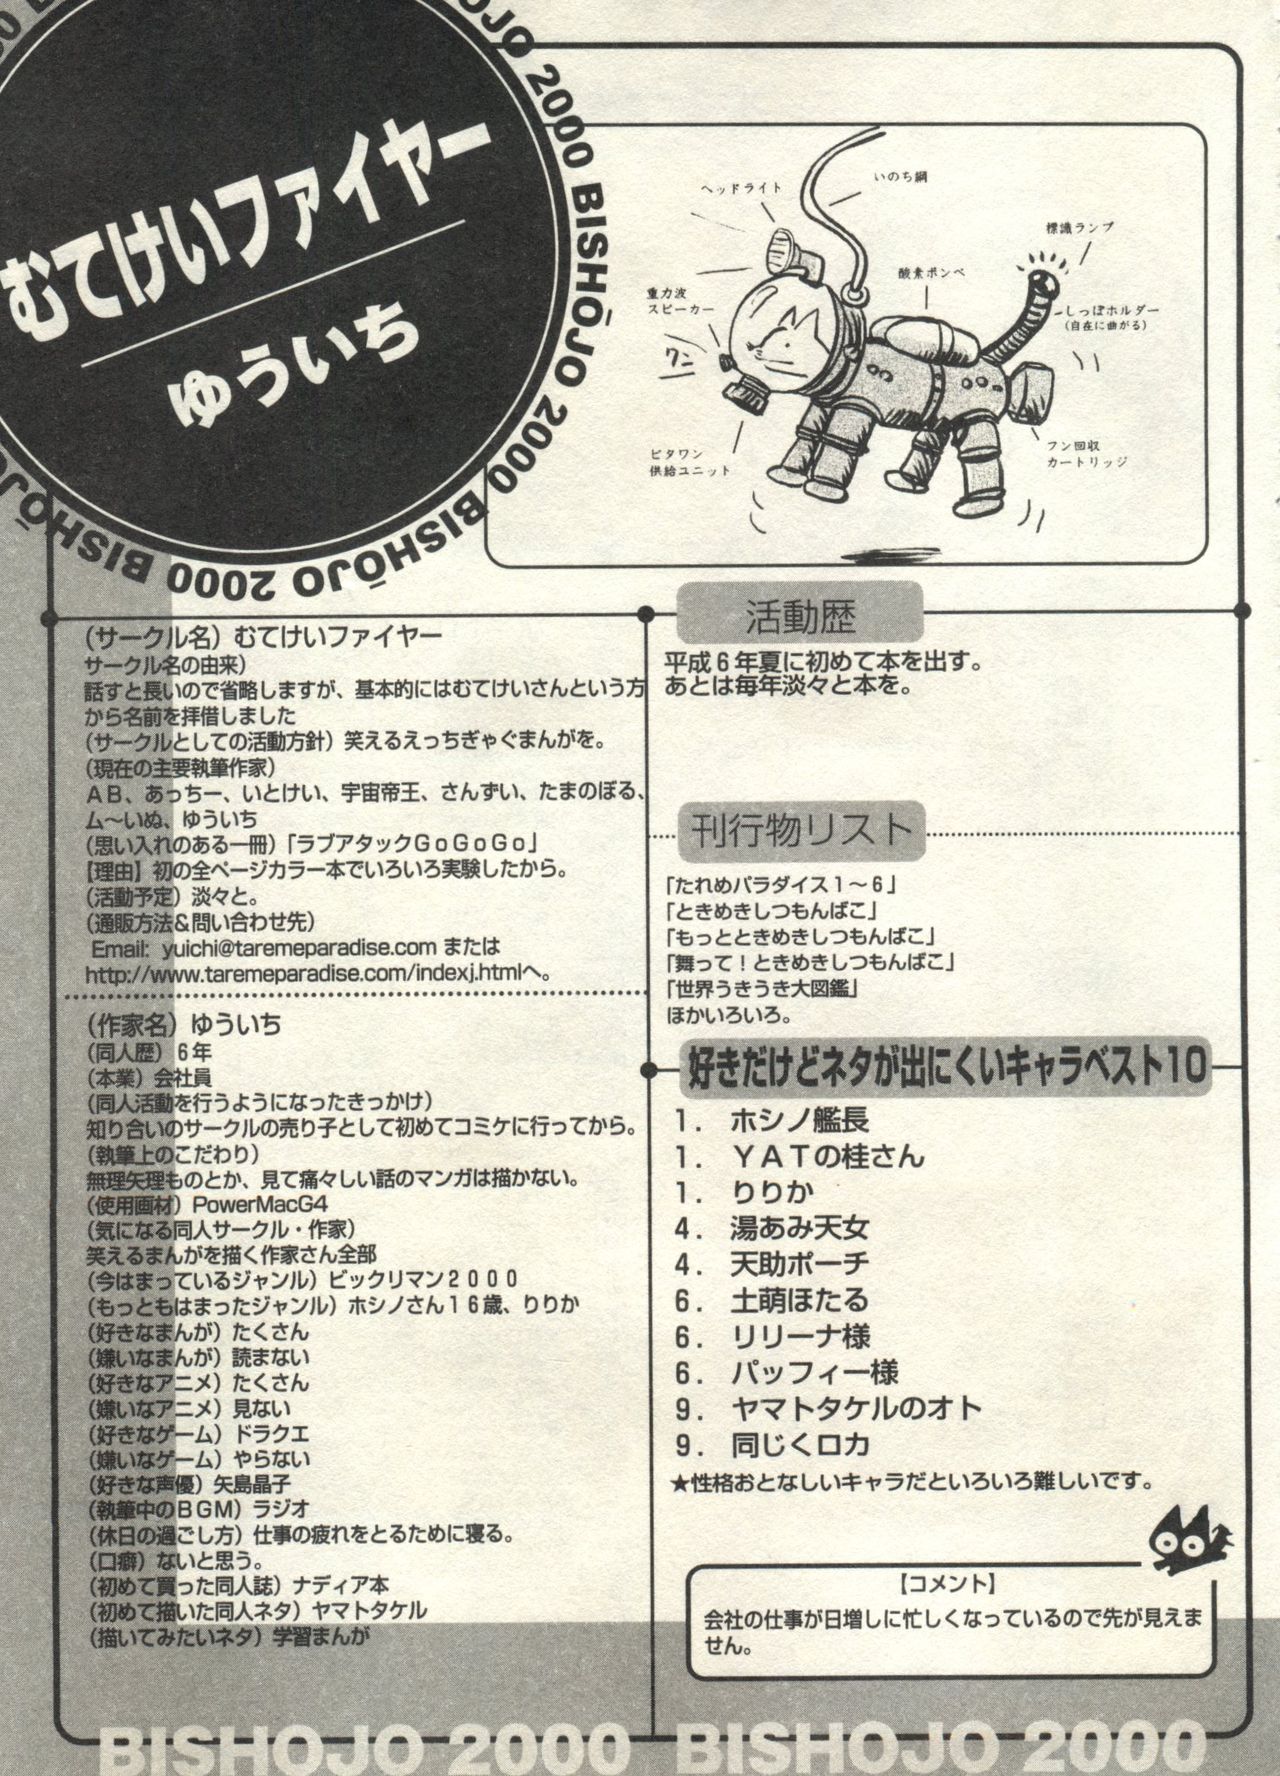 BISHŌJO 2000 BISHŌJO 2000 BISHŌJO 2000 BISHŌJO
むてけいファイヤー
ゆういち
ヘッドライト
いのち綱
標識ランプ
酸素ボンベ
重力波
スピーカー
しっぽホルダー
(自在に曲がる)
ワン
ビタワン
供給ユニット
フン回収
カートリッジ
(サークル名)むてけいファイヤー
サークル名の由来)
話すと長いので省略しますが、基本的にはむてけいさんという方
から名前を拝借しました
(サークルとしての活動方針)笑えるえっちぎゃぐまんがを。
(現在の主要執筆作家)
AB、あっちー、いとけい、宇宙帝王、さんずい、たまのぼる、
ム～いぬ、ゆういち
(思い入れのある一冊)「ラブアタックGoGoGo」
【理由】初の全ページカラー本でいろいろ実験したから。
(活動予定)淡々と。
(通販方法&問い合わせ先)
Email: yuichi@taremeparadise.com または
http://www.taremeparadise.com/indexj.htmlへ。
(作家名)ゆういち
(同人歴)6年
(本業)会社員
(同人活動を行うようになったきっかけ)
知り合いのサークルの売り子として初めてコミケに行ってから。
(執筆上のこだわり)
無理矢理ものとか、見て痛々しい話のマンガは描かない。
(使用画材)PowerMacG4
(気になる同人サークル・作家)
笑えるまんがを描く作家さん全部
(今はまっているジャンル)ビックリマン2000
(もっともはまったジャンル)ホシノさん16歳、りりか
(好きなまんが)たくさん
(嫌いなまんが)読まない
(好きなアニメ)たくさん
(嫌いなアニメ)見ない
(好きなゲーム)ドラクエ
(嫌いなゲーム)やらない
(好きな声優)矢島晶子
(執筆中のBGM)ラジオ
(休日の過ごし方)仕事の疲れをとるために寝る。
(口癖)ないと思う。
(初めて買った同人誌)ナディア本
(初めて描いた同人ネタ)ヤマトタケル
(描いてみたいネタ)学習まんが
活動歴
平成6年夏に初めて本を出す。
あとは毎年淡々と本を。
刊行物リスト
「たれめパラダイス1～6」
「ときめきしつもんばこ」
「もっとときめきしつもんばこ」
「舞って!ときめきしつもんばこ」
「世界うきうき大図鑑」
ほかいろいろ。
好きだけどネタが出にくいキャラベスト10
1. ホシノ艦長
1. YATの桂さん
1. りりか
4. 湯あみ天女
4. 天助ポーチ
6. 土萌ほたる
6. リリーナ様
6. パッフィー様
9. ヤマトタケルのオト
9. 同じくロカ
★性格おとなしいキャラだといろいろ難しいです。
【コメント】
会社の仕事が日増しに忙しくなっているので先が見えま
せん。
BISHOJO 2000 BISHOJO 2000